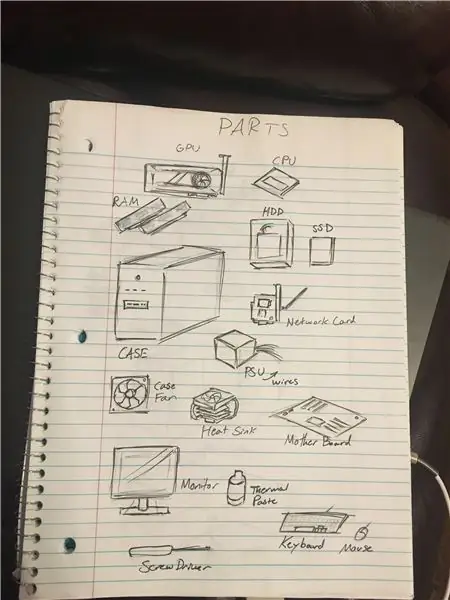 PARTS
GPU
CPU
RAM
HDD
SSD
Network Card
CASE
PSU
wires
Case
Fan
Heat Sink
Mother Board
Monitor
Thermal
Paste
Keyboard
Mouse
Screw Driver